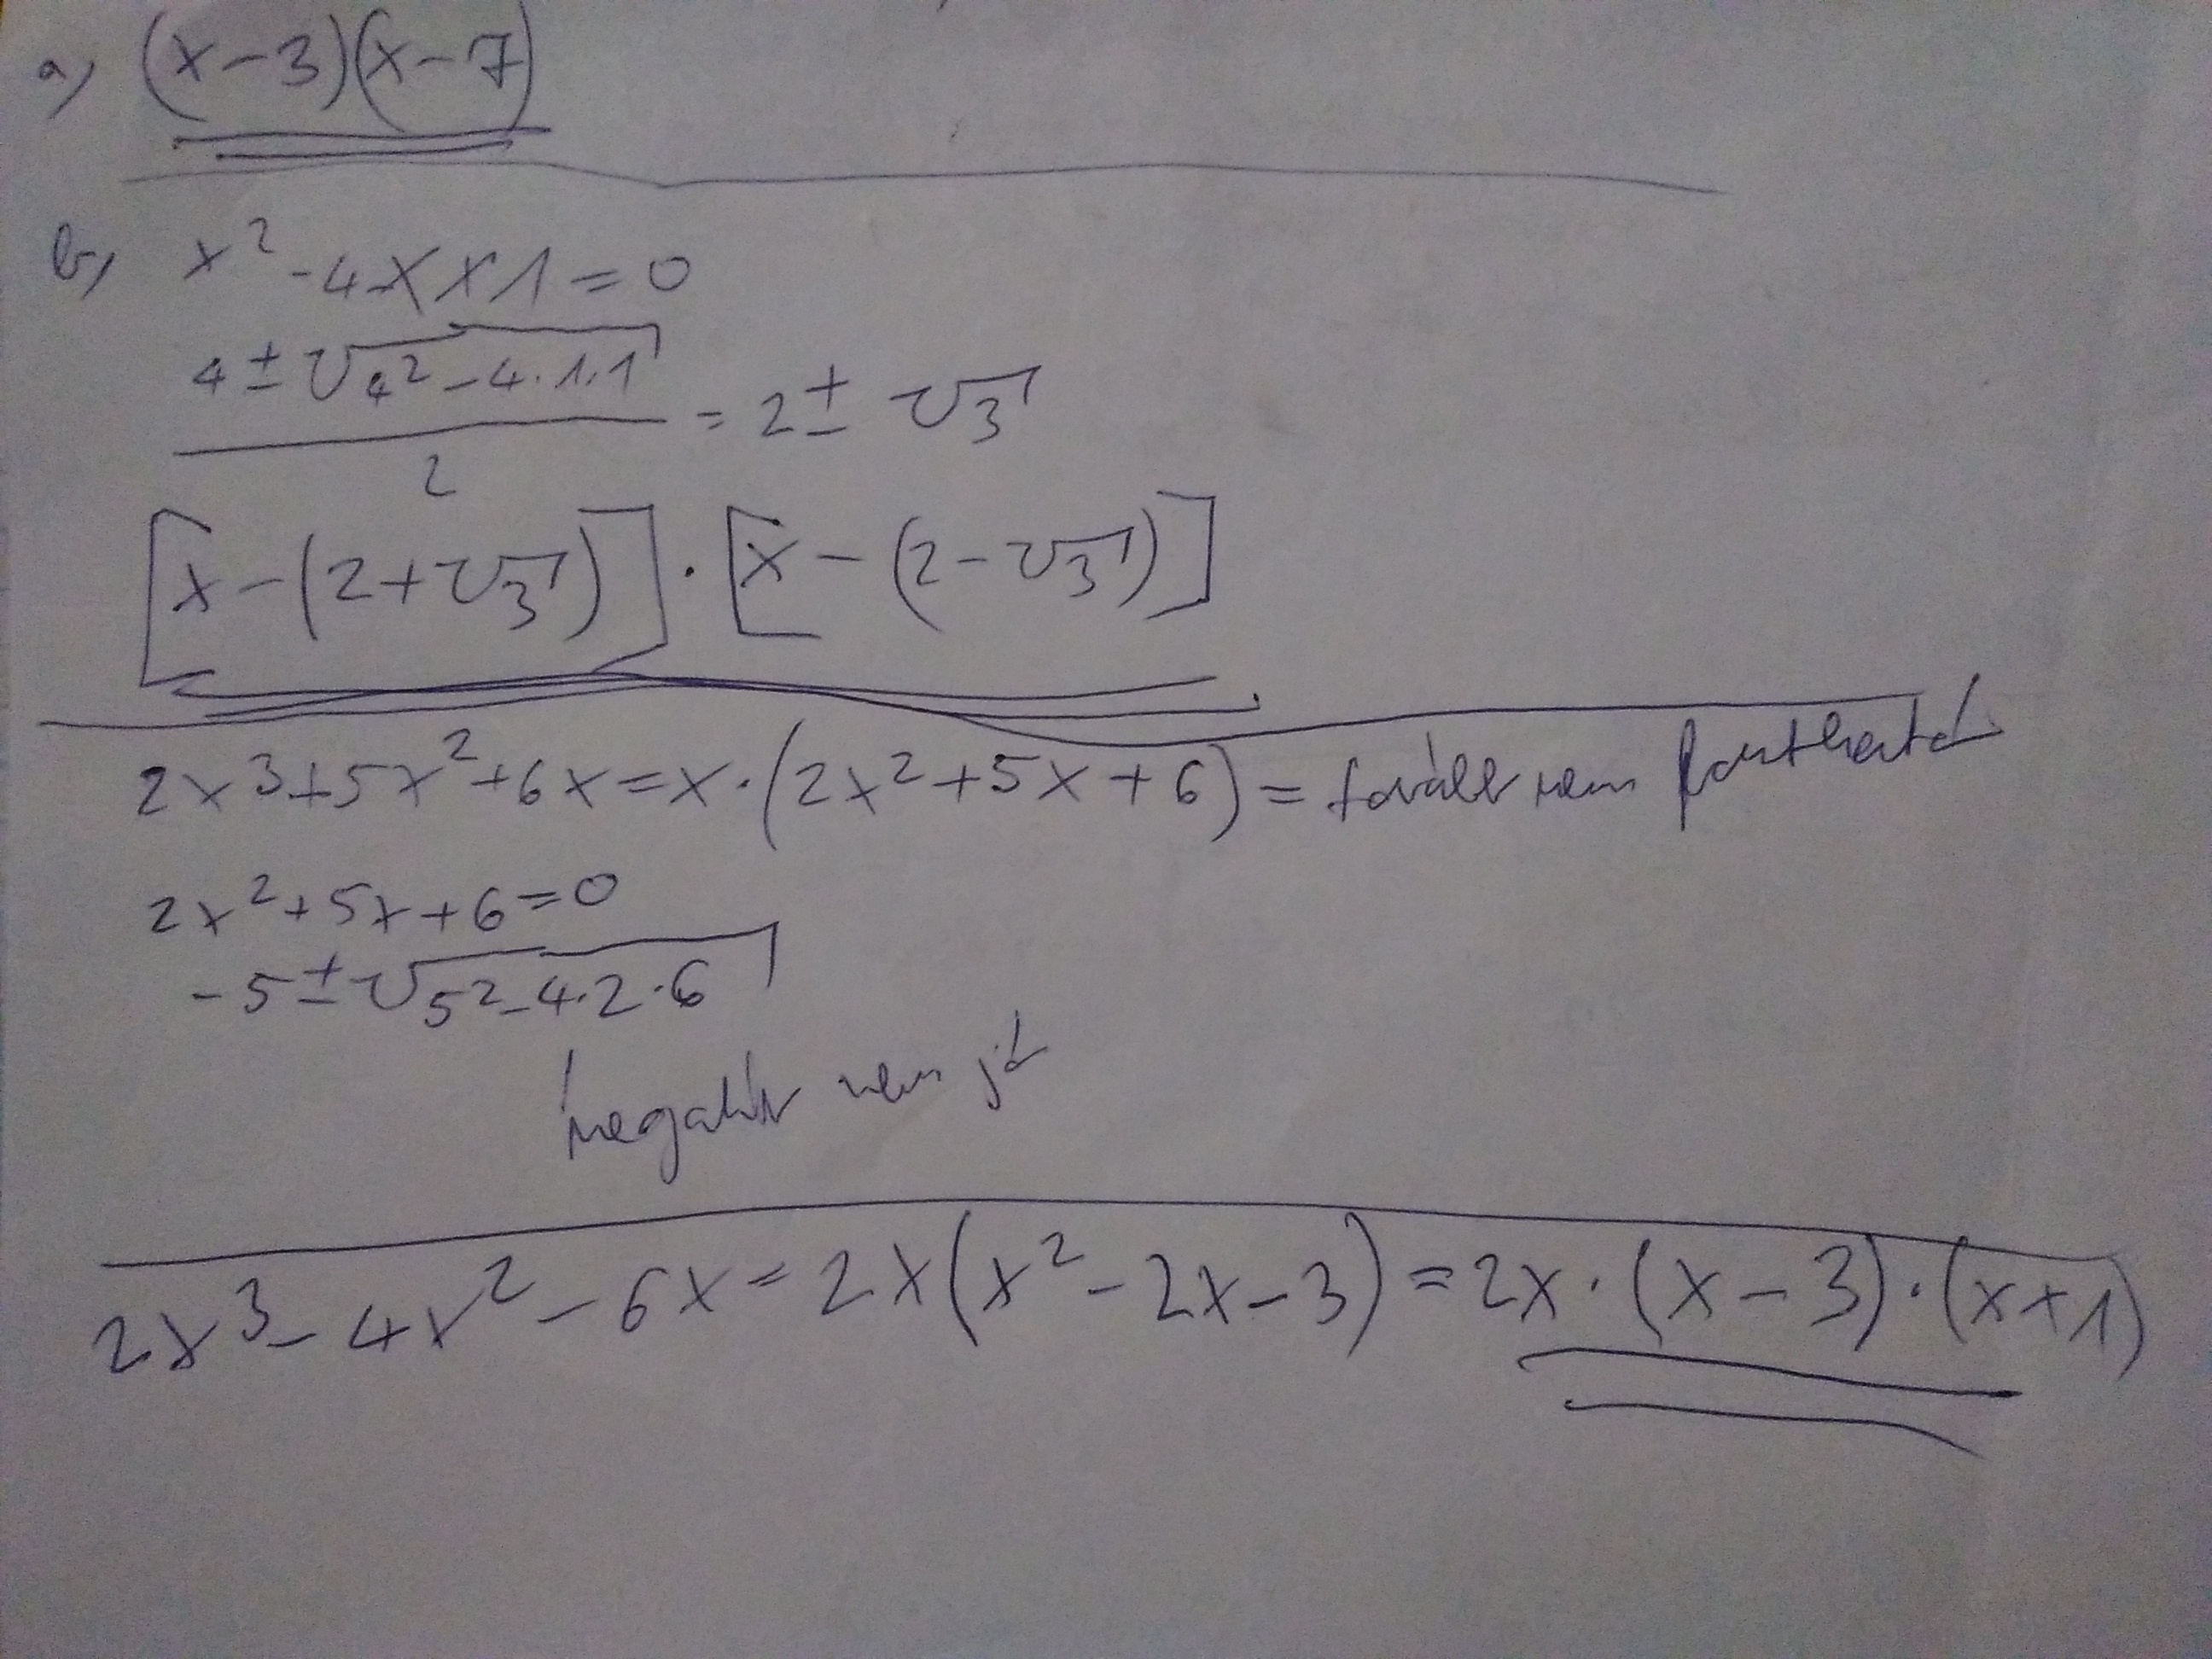 a) (x-3)(x-7)
b) x²-4x+1=0
4±√4²-4·1·1
2
= 2±√3
[x-(2+√3)]·[x-(2-√3)]
2x³+5x²+6x=x·(2x²+5x+6)= tovább nem bontható
2x²+5x+6=0
-5±√5²-4·2·6
negatív nem jó
2x³-4x²-6x=2x(x²-2x-3)=2x·(x-3)·(x+1)